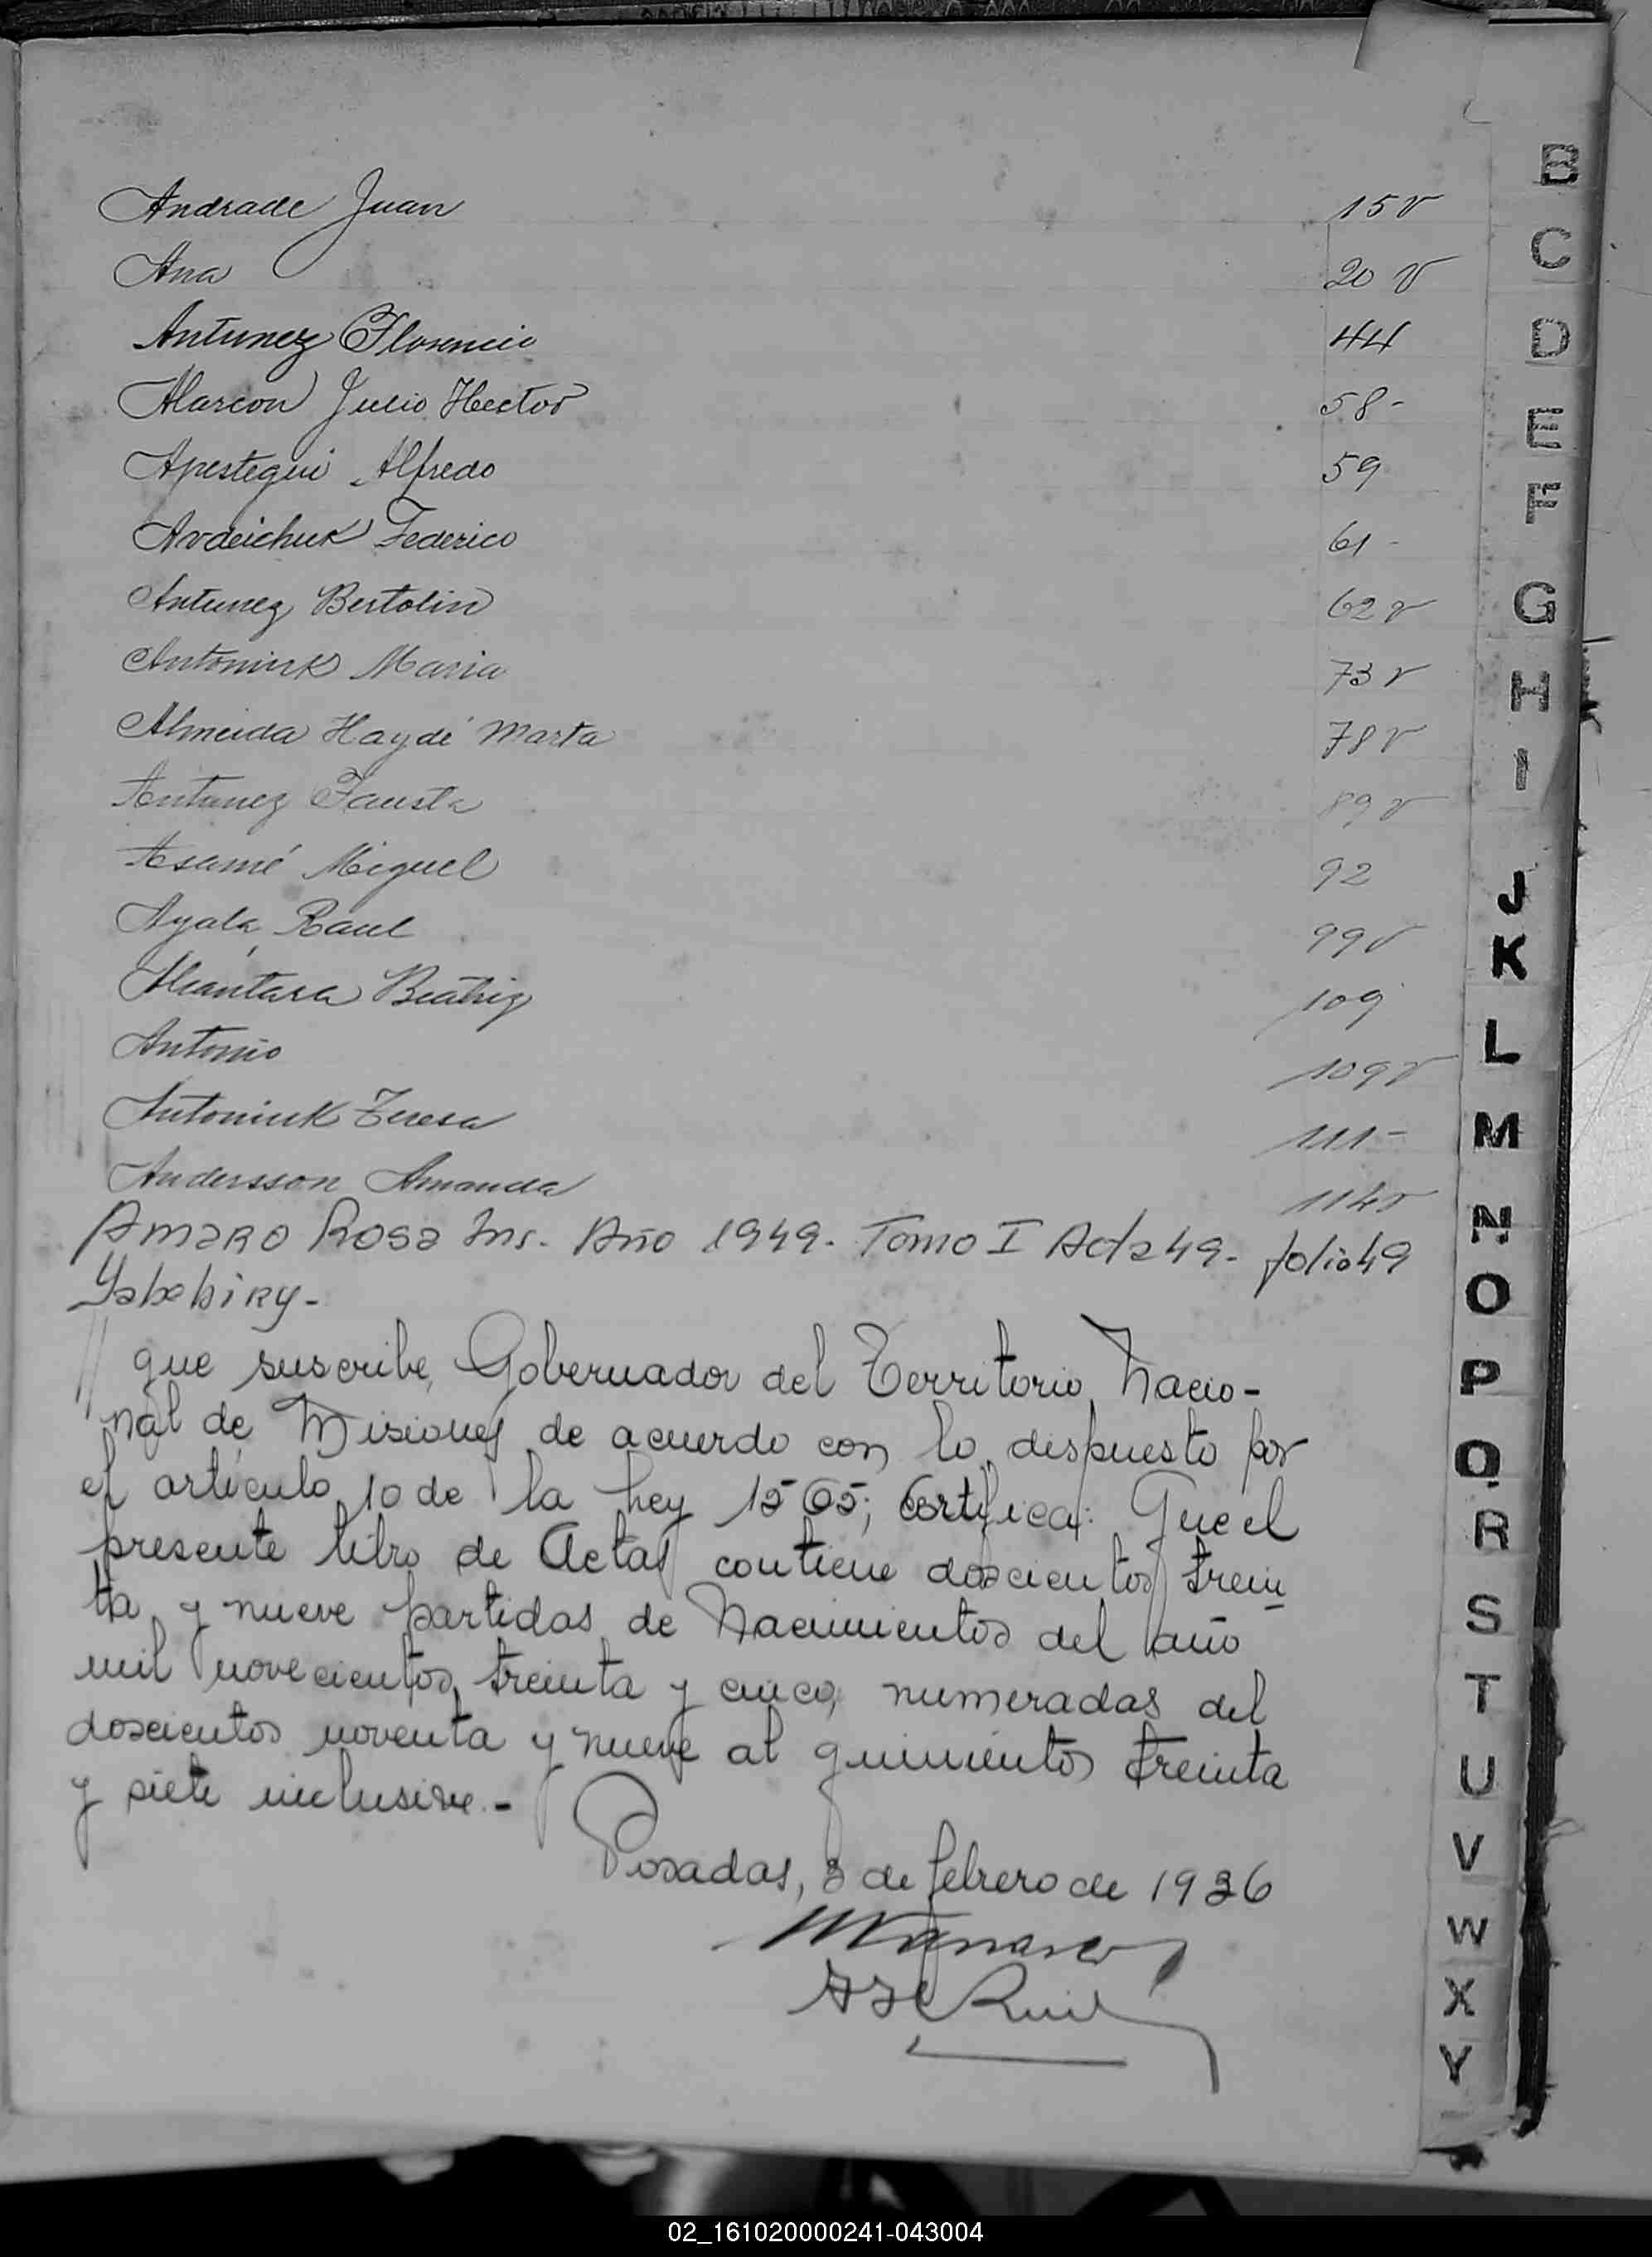 Andrade Juan 15 v
Ana 20 v
Antunez Florencio 44
Alarcon Julio Hector 58-
Apestegui Alfredo 59
Avdeichuk Federico 61-
Antunez Bertolin 62 v
Antoniuk Maria 73 v
Almeida Haydé Marta 78 v
Antunez Fausta 89 v
Asamé Miguel 92
Ayala Raul 99 v
Alcántara Beatriz 109
Antonio 109 v
Antoniuk Teresa 111-
Andersson Amanda 114 v
Amaro Rosa Ins. Año 1949. Tomo I Acta 49. folio 49
Yabebiry-
que suscribe, Gobernador del Territorio Nacio-
nal de Misiones de acuerdo con lo dispuesto por
el artículo 10 de la Ley 1565; Certifica: Que el
presente libro de Actas contiene doscientos trein
ta y nueve partidas de Nacimientos del año
mil novecientos treinta y cinco, numeradas del
doscientos noventa y nueve al quinientos treinta
y siete inclusive.-
Posadas, 3 de febrero de 1936
B
C
D
E
F
G
H
I
J
K
L
M
N
O
P
Q
R
S
T
U
V
W
X
Y
02_161020000241-043004